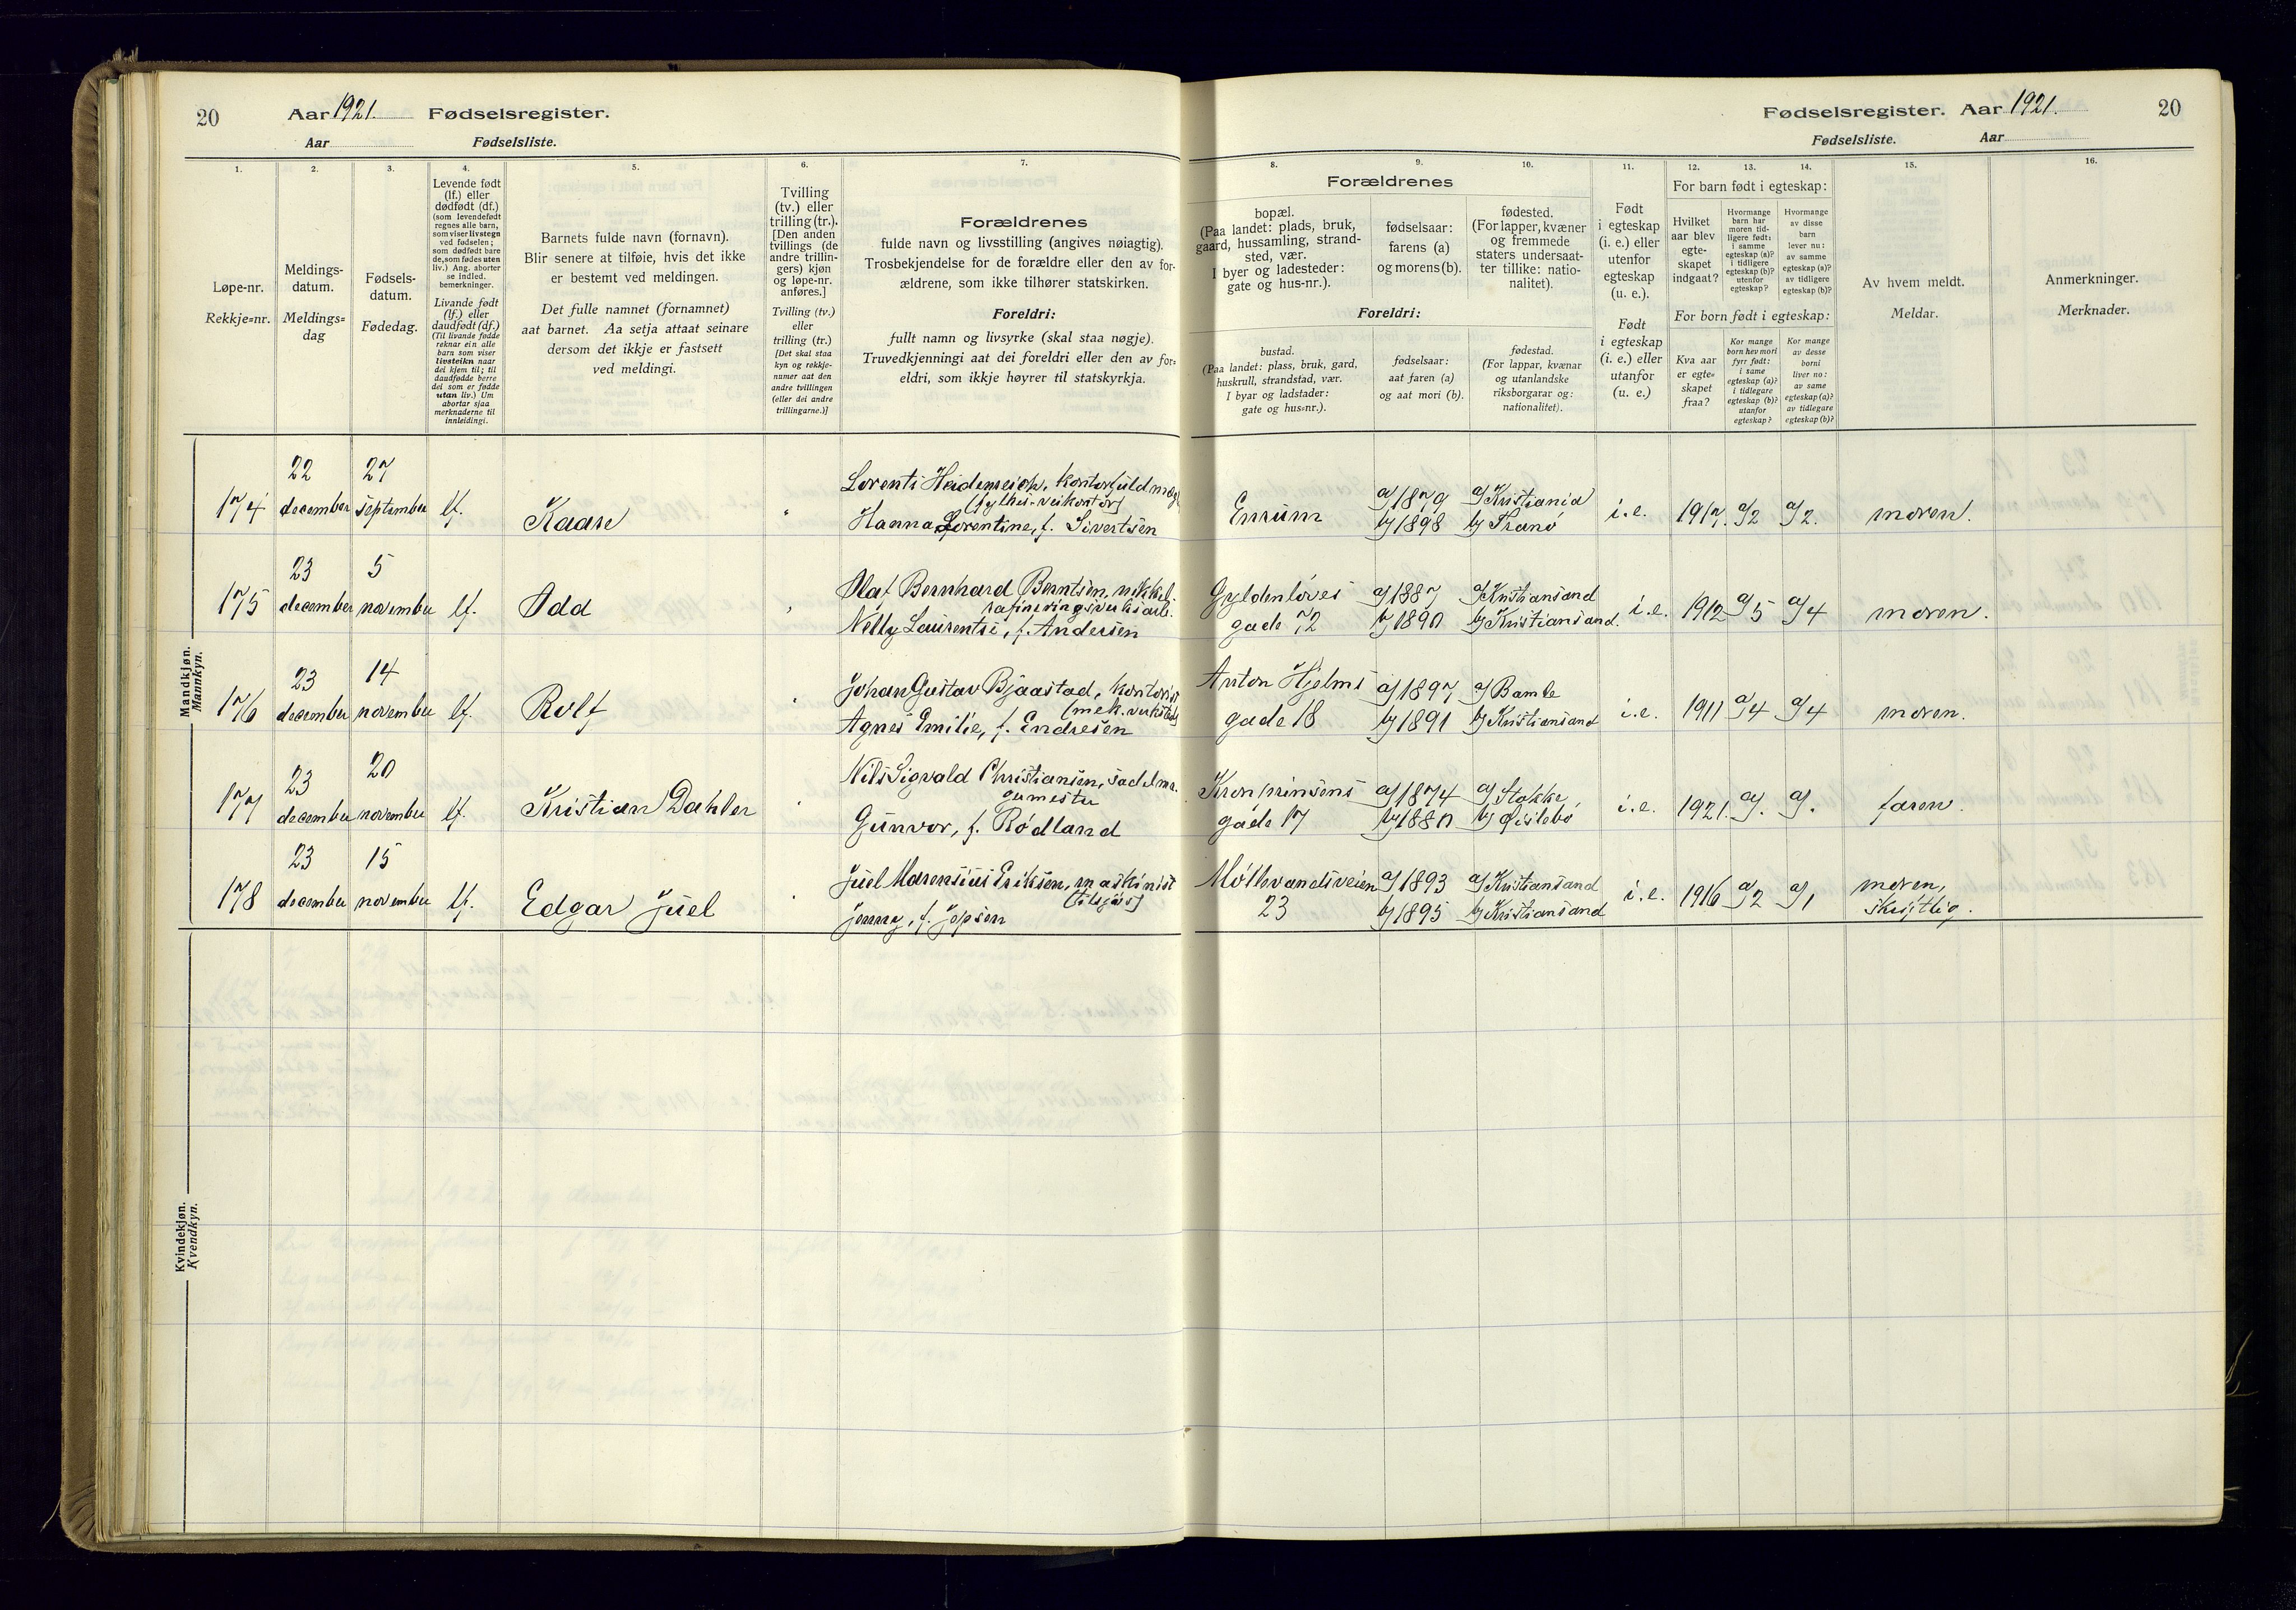 20 Aar 1921. Fødselsregister.
Aar Fødselsliste.
Fødselsregister. Aar 1921. 20
Fødselsliste. Aar
1.
Løpe-nr.
Rekkje-nr.
2.
Meldings-
datum.
Meldings-
dag
3.
Fødsels-
datum.
Fødedag.
4.
Levende født
(lf.) eller
dødfødt (df.)
(som levendefødt
regnes alle barn,
som viser livstegn
ved fødselen;
som dødfødt bare
de, som fødes uten
liv.) Ang. aborter
se indled.
bemerkninger.
Livande født
(lf.) eller
daudfødt (df.)
(Til livande fødde
reknar ein alle
barn som viser
livsteikn naar
dei kjem til; til
daudfødde berre
dei som er fødde
utan liv.) Um
abortar sjaa
merknaderne til
innleidingi.
5.
Barnets fulde navn (fornavn).
Blir senere at tilføie, hvis det ikke
er bestemt ved meldingen.
Det fulle namnet (fornamnet)
aat barnet. Aa setja attaat seinare
dersom det ikkje er fastsett
ved meldingi.
6.
Tvilling
(tv.) eller
trilling (tr.).
[Den anden
tvillings (de
andre trillin-
gers) kjøn
og løpe-nr.
anføres.]
Tvilling (tv.)
eller
trilling (tr.)
[Det skal staa
kyn og rekkje-
numer aat den
andre tvillingen
(eller dei andre
trillingarne.)]
7.
Forældrenes
fulde navn og livsstilling (angives nøiagtig).
Trosbekjendelse for de forældre eller den av for-
ældrene, som ikke tilhører statskirken.
Foreldri:
fullt namn og livsyrke (skal staa nøgje).
Truvedkjenningi aat dei foreldri eller den av for-
eldri, som ikkje høyrer til statskyrkja.
Forældrenes
8.
bopæl.
(Paa landet: plads, bruk,
gaard, hussamling, strand-
sted, vær.
I byer og ladesteder:
gate og hus-nr.).
9.
fødselsaar:
farens (a)
og morens (b).
10.
fødested.
(For lapper, kvæner
og fremmede
staters undersaat-
ter tillike: natio-
nalitet).
Foreldri:
bustad.
(Paa landet: plass, bruk, gard,
huskrull, strandstad, vær.
I byar og ladstader:
gate og hus-nr.).
fødselsaar:
aat faren (a)
og aat mori (b).
fødestad.
(For lappar, kvænar
og utanlandske
riksborgarar og:
nationalitet).
11.
Født
i egteskap
(i. e.) eller
utenfor
egteskap
(u. e.).
Født
i egteskap
(i. e.) eller
utanfor
(u. e.).
12. 13. 14.
For barn født i egteskap:
Hvilket
aar blev
egte-
skapet
indgaat?
Hvormange
barn har
moren tid-
ligere født:
i samme
egteskap (a)?
i tidligere
egteskap (b)?
utenfor
egteskap?
Hvormange
av disse
barn
lever nu:
av samme
egteskap (a)?
av tidligere
egteskap (b)?
For born født i egteskap:
Kva aar
er egte-
skapet
fraa?
Kor mange
born hev mori
fyrr født:
i same
egteskap (a)?
i tidlegare
egteskap (b)?
utanfor
egteskap?
Kor mange
av desse
borni
liver no:
av same
egteskap (a)?
av tidlegare
egteskap (b)?
15.
Av hvem meldt.
Meldar.
16.
Anmerkninger.
Merknader.
Mandkjøn.
Mannkyn.
174 22 december 27 september lf. Kaare
Lorents Heidenreich, kontorfuldmæg
(fylkes-veikontor)
Hanna Lorentine, f. Sivertsen
a/1879 a/Kristiania
b/1898 b/Tranö
i.e. 1917. a/2 a/2. moren.
175 23 december 5 november lf. Odd
Olaf Bernhard Berntsen, nikkel-
rafineringsverksarb.
Nelly Laurentse, f. Andersen
Gyldenløves
gade 72
a/1887 a/Kristiansand
b/1890 b/Kristiansand.
i.e. 1912 a/5 a/4 moren.
176 23 december 14 november lf. Rolf
Johan Gustav Bjaastad, kontorist
(mek. verksted)
Agnes Emilie, f. Endresen
Anton Hjelms
gade 18
a/1897 a/Bamle
b/1891 b/Kristiansand
i.e. 1911 a/4 a/4 moren.
177 23 december 20 november lf. Kristian Dahler
Nils Sigvald Christiansen, sadelma.
germester
Gunvor, f. Rödland
Kronprinsens
gade 17
a/1874 a/Stokke,
b/1880 b/Øislebö
i.e. 1921. a/. a/. faren.
178 23 december 15 november lf. Edgar Juel
Juel Marensius Eriksen, maskinist
(tilsjøs)
Jenny, f. Jepsen
Møllevandsveien
23
a/1893 a/Kristiansand
b/1895 b/Kristiansand
i.e. 1916 a/2 a/1 moren,
skriftlig.
Kvindekjøn.
Kvendkyn.